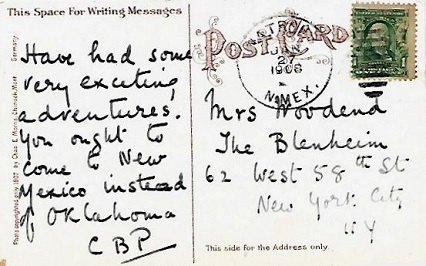 This Space For Writing Messages
Have had some
very exciting
adventures.
You ought to
come to New
Mexico instead
of Oklahoma
CBP
POST CARD
JAN
27
1908
N.MEX.
1
Mrs Woodend
The Blenheim
62 West 58th St
New York City
NY
This side for the Address only.
Germany